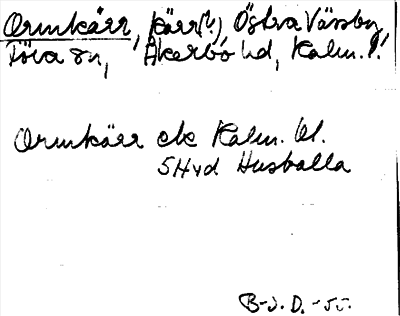 Ormkärr, kärr(?), Östra Vässby,
Föra sn, Åkerbo hd, Kalm. l.
Ormkärr ek Kalm. bl.
5Hvd Husvalla
B-J. D. -55.